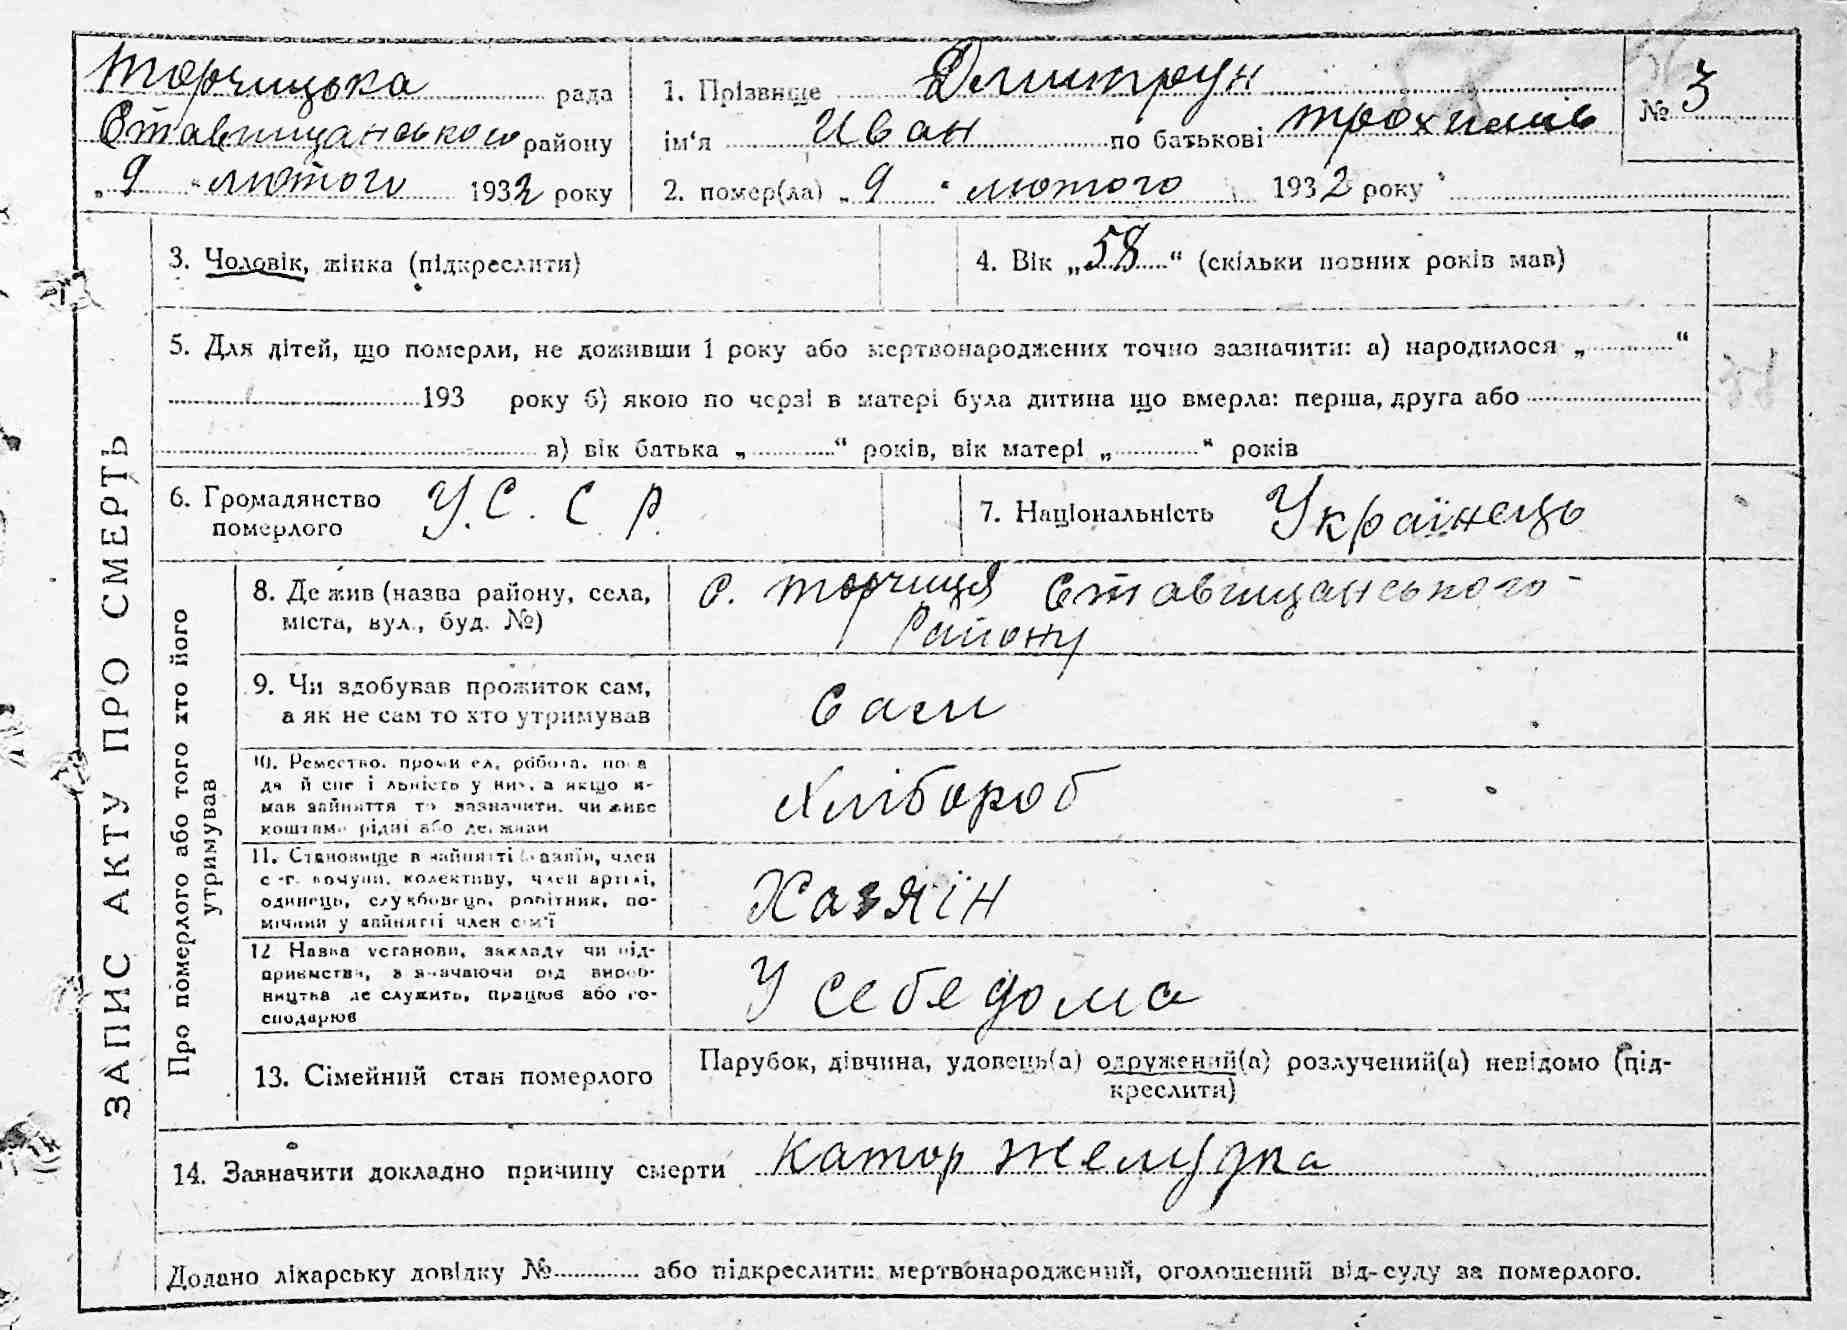 Торчицька рада
Ставищанського району
„ 9 “ лютого 1932 року
1. Прізвище Дмитрун
ім'я Иван по батькові Трохимів
2. помер(ла) „ 9 “ лютого 1932 року
№ 3
ЗАПИС АКТУ ПРО СМЕРТЬ
3. Чоловік, жінка (підкреслити)
4. Вік „58“ (скільки повних років мав)
5. Для дітей, що померли, не доживши 1 року або мертвонароджених точно зазначити: а) народилося „..........“
..........193 року б) якою по черзі в матері була дитина що вмерла: перша, друга або ..........
.......... в) вік батька „..........“ років, вік матері „..........“ років
6. Громадянство
померлого
У. С. С Р.
7. Національність Українець
Про померлого або того хто його
утримував
8. Де жив (назва району, села,
міста, вул., буд. №)
с. Торчиця Ставищанського
району
9. Чи здобував прожиток сам,
а як не сам то хто утримував
Сам
10. Ремество, промисел, робота, поса
да й спеціальність у них, а якщо не
мав зайняття то зазначити, чи живе
коштами рідні або держави
Хлібороб
11. Становище в зайнятті (хазяїн, член
с-г. комуни, колективу, член артілі,
одинець, службовець, робітник, по-
мічний у зайнятті член сім'ї
Хазяїн
12 Назва установи, закладу чи під-
приємства, зазначаючи рід вироб-
ництва де служить, працює або го-
сподарює
У себе дома
13. Сімейний стан померлого
Парубок, дівчина, удовець(а) одружений(а) розлучений(а) невідомо (під-
креслити)
14. Зазначити докладно причину смерти катор желудка
Додано лікарську довідку №.......... або підкреслити: мертвонароджений, оголошений від-суду за померлого.